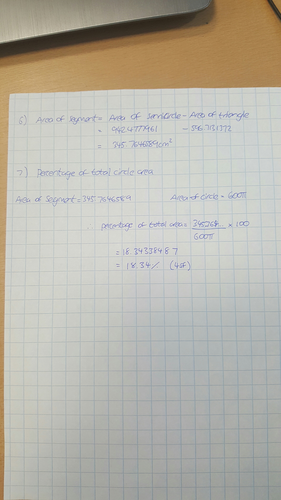 6) Area of segment = Area of semicircle - Area of triangle
= 942.4777961 - 596.7131772
= 345.7646589 cm²
7) Percentage of total circle area
Area of Segment = 345.7646589 Area of circle = 600π
∴ percentage of total area = 345.764... / 600π × 100
= 18.34338487
= 18.34% (4sf)